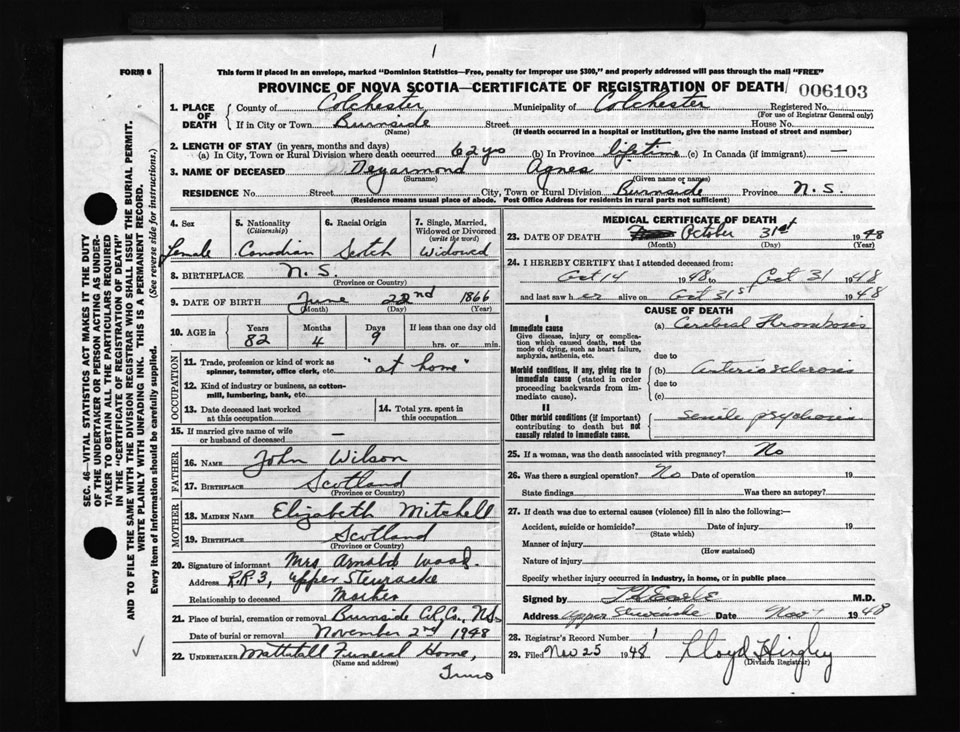 1
FORM 6
This form if placed in an envelope, marked "Dominion Statistics—Free, penalty for improper use $300," and properly addressed will pass through the mail "FREE"
PROVINCE OF NOVA SCOTIA—CERTIFICATE OF REGISTRATION OF DEATH 006103
1. PLACE OF DEATH County of Colchester Municipality of Colchester Registered No.
(For use of Registrar General only)
If in City or Town Burnside Street House No.
(Name) (If death occurred in a hospital or institution, give the name instead of street and number)
2. LENGTH OF STAY (in years, months and days)
(a) In City, Town or Rural Division where death occurred 62 yo (b) In Province lifetime (c) In Canada (if immigrant) —
3. NAME OF DECEASED Deyarmond Agnes
(Surname) (Given name or names)
RESIDENCE No. Street City, Town or Rural Division Burnside Province N.S.
(Residence means usual place of abode. Post Office Address for residents in rural parts not sufficient)
4. Sex
Female
5. Nationality
(Citizenship)
Canadian
6. Racial Origin
Scotch
7. Single, Married, Widowed or Divorced
(write the word)
Widowed
8. BIRTHPLACE N.S.
(Province or Country)
9. DATE OF BIRTH June 22nd 1866
(Month) (Day) (Year)
10. AGE in Years Months Days If less than one day old
82 4 9 hrs. or min.
OCCUPATION
11. Trade, profession or kind of work as spinner, teamster, office clerk, etc. "at home"
12. Kind of industry or business, as cotton-mill, lumbering, bank, etc.
13. Date deceased last worked at this occupation
14. Total yrs. spent in this occupation
15. If married give name of wife or husband of deceased —
FATHER
16. NAME John Wilson
17. BIRTHPLACE Scotland
(Province or Country)
MOTHER
18. MAIDEN NAME Elizabeth Mitchell
19. BIRTHPLACE Scotland
(Province or Country)
20. Signature of informant Mrs Arnold Wood.
Address R.R. 3, Upper Stewiacke
Relationship to deceased Mother
21. Place of burial, cremation or removal Burnside Col. Co., N.S.
Date of burial or removal November 2nd 1948
22. UNDERTAKER Mattatall Funeral Home,
(Name and address)
Truro
MEDICAL CERTIFICATE OF DEATH
23. DATE OF DEATH October 31st 1948
(Month) (Day) (Year)
24. I HEREBY CERTIFY that I attended deceased from:
Oct 14 1948 to Oct 31 1948
and last saw h er alive on Oct 31st 1948
CAUSE OF DEATH
I
Immediate cause
Give disease, injury or complication which caused death, not the mode of dying, such as heart failure, asphyxia, asthenia, etc.
(a) Cerebral Thrombosis
due to
Morbid conditions, if any, giving rise to immediate cause (stated in order proceeding backwards from immediate cause).
(b) Arteriosclerosis
due to
(c)
II
Other morbid conditions (if important) contributing to death but not causally related to immediate cause.
senile psychosis
25. If a woman, was the death associated with pregnancy? No
26. Was there a surgical operation? No Date of operation 19
State findings Was there an autopsy?
27. If death was due to external causes (violence) fill in also the following:—
Accident, suicide or homicide? Date of injury 19
(State which)
Manner of injury
(How sustained)
Nature of injury
Specify whether injury occurred in industry, in home, or in public place
Signed by M.D.
Address Upper Stewiacke Date Nov 1948
28. Registrar's Record Number 1
29. Filed Nov 25 1948 Lloyd Hingley
(Division Registrar)
SEC. 46—VITAL STATISTICS ACT MAKES IT THE DUTY
OF THE UNDERTAKER OR PERSON ACTING AS UNDER-
TAKER TO OBTAIN ALL THE PARTICULARS REQUIRED
IN THE "CERTIFICATE OF REGISTRATION OF DEATH"
AND TO FILE THE SAME WITH THE DIVISION REGISTRAR WHO SHALL ISSUE THE BURIAL PERMIT.
WRITE PLAINLY WITH UNFADING INK. THIS IS A PERMANENT RECORD.
Every item of Information should be carefully supplied. (See reverse side for instructions.)